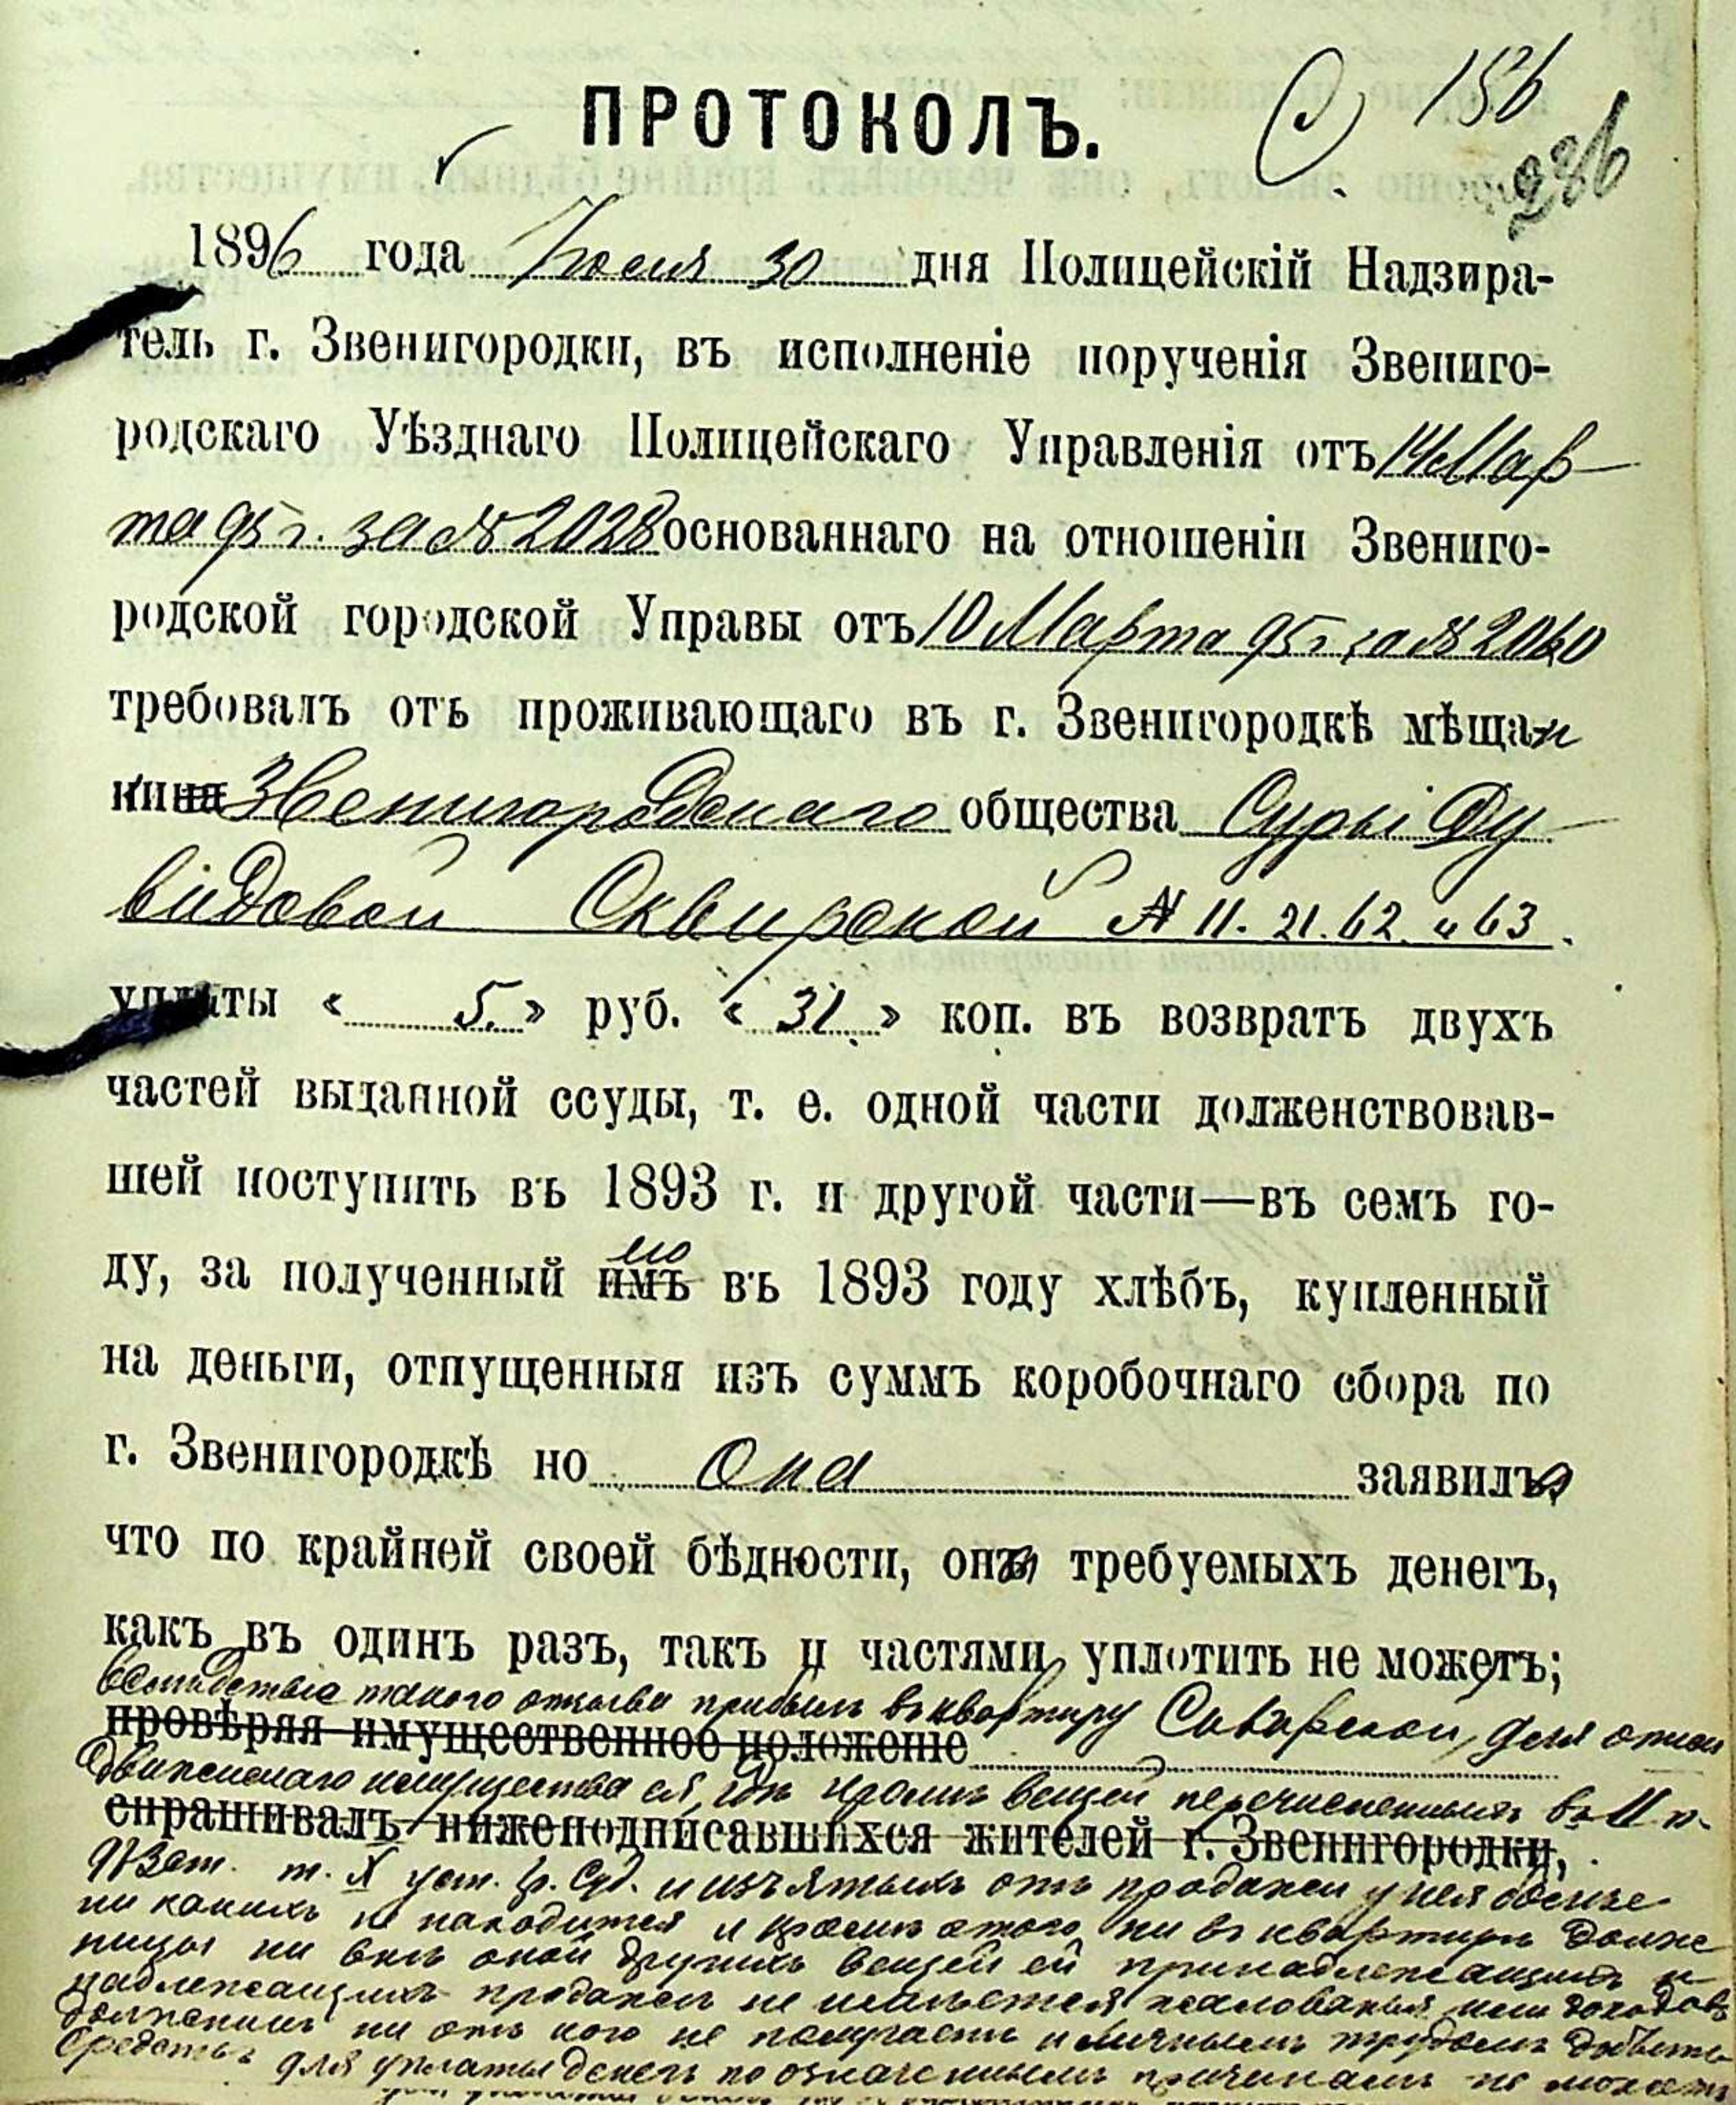 ПРОТОКОЛЪ.
156
236
1896 года Іюня 30 дня Полицейскій Надзира-
тель г. Звенигородки, въ исполненіе порученія Звениго-
родскаго Уѣзднаго Полицейскаго Управленія отъ 14 Мар-
та 95 г. за № 2028 основаннаго на отношеніи Звениго-
родской городской Управы отъ 10 Марта 95 г за № 2060
требовалъ отъ проживающаго въ г. Звенигородкѣ мѣщан
кина Звенигородскаго общества Суры Ду-
видовой Сквирской № 11. 21. 62 и 63.
уплаты « 5. » руб. « 31 » коп. въ возвратъ двухъ
частей выданной ссуды, т. е. одной части долженствовав-
шей поступить въ 1893 г. и другой части—въ семъ го-
ею
ду, за полученный имъ въ 1893 году хлѣбъ, купленный
на деньги, отпущенныя изъ суммъ коробочнаго сбора по
г. Звенигородкѣ но Она заявила
что по крайней своей бѣдности, она требуемыхъ денегъ,
какъ въ одинъ разъ, такъ и частями уплотить не можетъ;
вслѣдствіе такого отзыва прибылъ въ квартиру Сквирской, для описи
провѣряя имущественное положеніе
движимаго имущества ея, гдѣ кромѣ вещей перечисленныхъ въ II п.
спрашивалъ нижеподписавшихся жителей г. Звенигородки,
973 ст. т. X уст. гр. Суд. и изъятыхъ отъ продажи у нея
ни какихъ не находится и кромѣ этого ни въ квартирѣ долж-
ницы ни внѣ оной другихъ вещей ей принадлежащихъ и
надлежащихъ продажѣ не имѣется, жалованья или доходовъ
должница ни отъ кого не получаетъ и личнымъ трудомъ добыть
средствъ для уплаты денегъ по означеннымъ причинамъ не можетъ